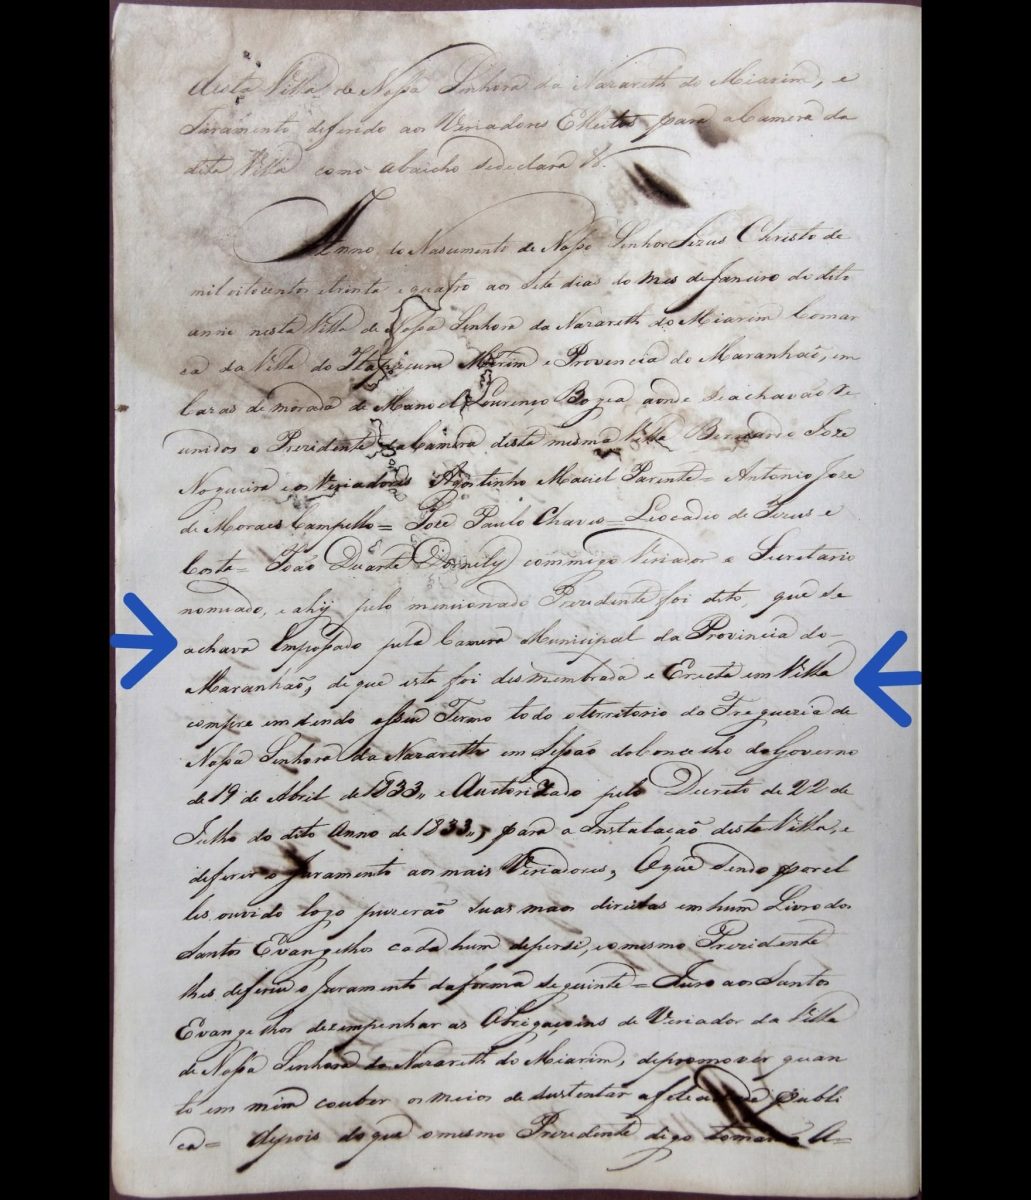 desta Villa de Nossa Senhora da Nazareth do Miarim, e
Juramento deferido aos Veriadores Elleitos para a Camera da
dita Villa como abaicho sedeclara &.
Anno do Nascimento de Nosso Senhor Jezus Christo de
mil oitocentos etrinta e quatro aos Sete dias do mes de Janeiro do dito
anno nesta Villa de Nossa Senhora da Nazareth do Miarim Comar
ca da Villa do Itapicuru Merim e Provencia do Maranhaõ, em
Cazas demorada de Manoel Lourenço Bogea aonde se achavaõ re
unidos o Prezidente da Camera desta mesma Villa Bernardo Joze
Nogueira e os Veriadores Agostinho Maciel Parente = Antonio Joze
de Moraes Campello = Joze Paulo Chaves = Leocadio de Jezus e
Costa = Joaõ Duarte commigo Veriador e Secretario
nomiado, e ahÿ pelo mencionado Prezidente foi dito, que se
achava Empossado pela Camera Municipal da Provincia do
Maranhaõ, de que esta foi desmembrada e Erecta em Villa
compre endendo oseu Termo todo oterritorio da Freguezia de
Nossa Senhora da Nazareth em Sessaõ do Concelho do Governo
de 19 de Abril de 1833,, e Auctorizado pelo Decreto de 22 de
Julho do dito Anno de 1833,,, para a Instalaçaõ desta Villa, e
deferir o Juramento aos mais Veriadores, Oque sendo por el
les ouvido logo puzeraõ suas maos direitas em hum Livro dos
Santos Evangelhos cada hum depersi, eomesmo Prezidente
lhes deferiu o Juramento daforma seguinte = Juro aos Santos
Evangelhos dezempenhar as Obrigaçoins de Veriador da Villa
de Nossa Senhora da Nazareth do Miarim, depromover quan
to em mim couber os meios de sustentar a felecidade publi
ca = depois do que omesmo Prezidente digo tomaraõ A=